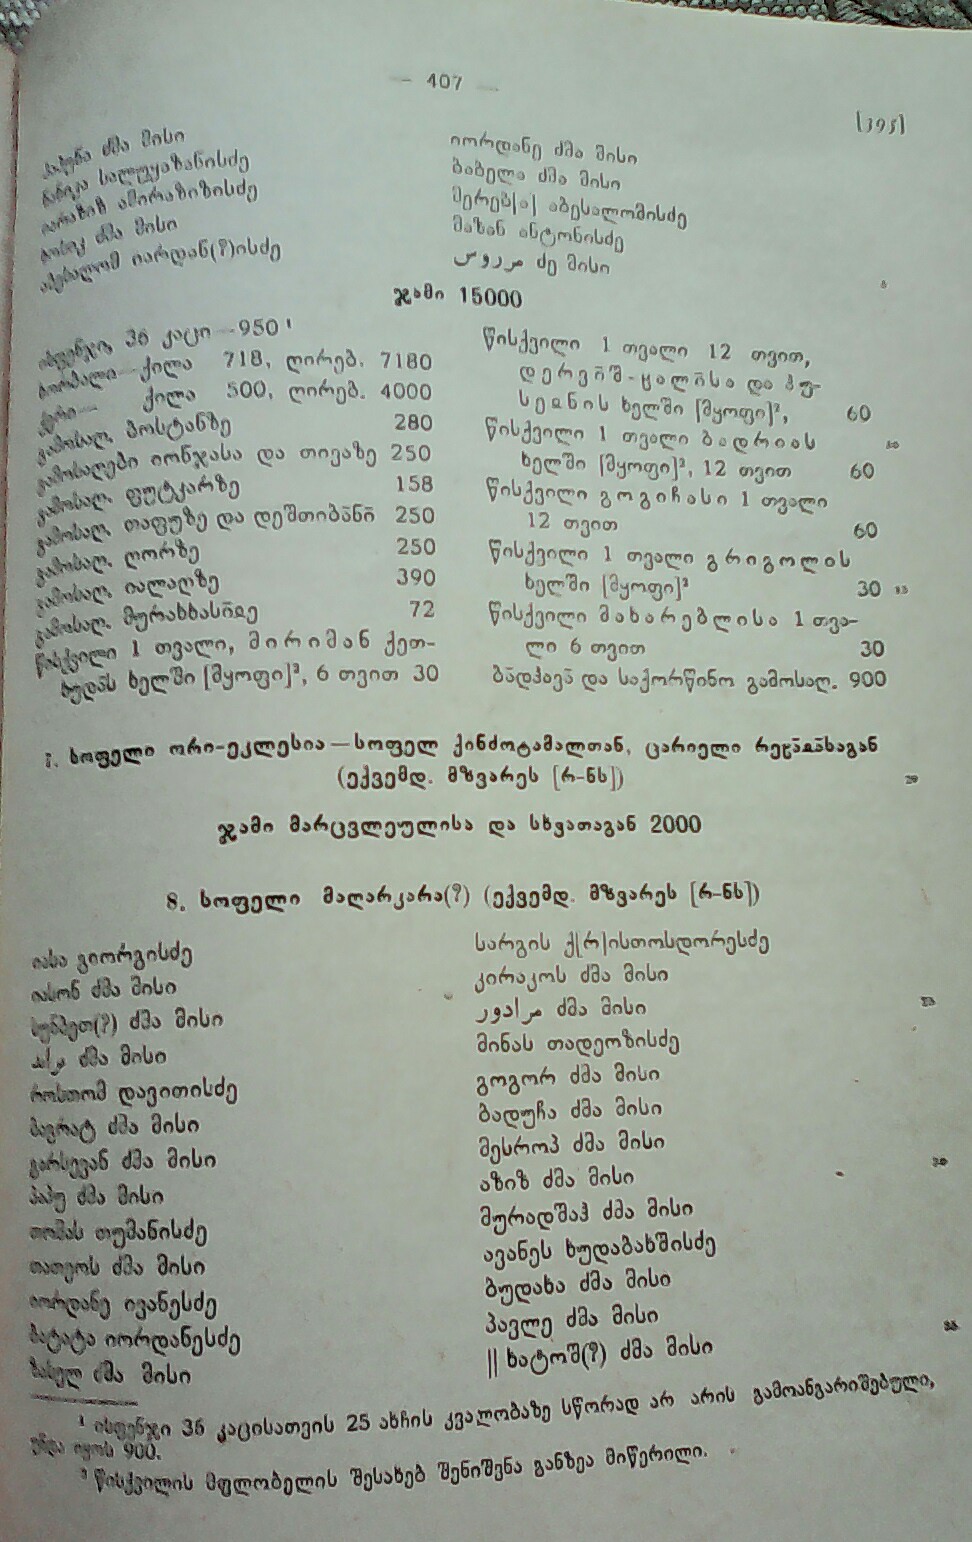 — 407 —
[395]
პაპუნა ძმა მისი
სალუყაზანისძე
ამირაზიზისძე
ძმა მისი
იარდან(?)ისძე
იორდანე ძმა მისი
ბაბელა ძმა მისი
მერებ[ა] აბესალომისძე
მაზან ანტონისძე
ძე მისი
5
ჯამი 15000
ისფენჯი 36 კაცი—950 ¹
ხორბალი—ქილა 718, ღირებ. 7180
ქერი— ქილა 500, ღირებ. 4000
გამოსაღ. ბოსტანზე 280
გამოსაღები იონჯასა და თივაზე 250
გამოსაღ. ფუტკარზე 158
გამოსაღ. თაფუზე და დეშთიბანი 250
გამოსაღ. ღორზე 250
გამოსაღ. იალაღზე 390
გამოსაღ. 72
წისქვილი 1 თვალი, მირიმან ქეთ-
ხუდას ხელში [მყოფი]², 6 თვით 30
წისქვილი 1 თვალი 12 თვით,
ხელში [მყოფი]², 60
წისქვილი 1 თვალი ბადრიას 10
ხელში [მყოფი]², 12 თვით 60
წისქვილი გოგიჩასი 1 თვალი
12 თვით 60
წისქვილი 1 თვალი გრიგოლის
ხელში [მყოფი]² 30 15
წისქვილი მახარებლისა 1 თვა-
ლი 6 თვით 30
ბადჰავა და საქორწინო გამოსაღ. 900
7. სოფელი ორი-ეკლესია—სოფელ ქინძოტამალთან, ცარიელი რეჯაასაგან
(ექვემდ. მზვარეს [რ-ნს]) 20
ჯამი მარცვლეულისა და სხვათაგან 2000
8. სოფელი მაღარკარა(?) (ექვემდ. მზვარეს [რ-ნს])
იასა გიორგისძე
იასონ ძმა მისი
სუნბეთ(?) ძმა მისი
ძმა მისი
როსთომ დავითისძე
ბაგრატ ძმა მისი
გარსევან ძმა მისი
პაპუ ძმა მისი
თომას თუმანისძე
თათეოს ძმა მისი
იორდანე ივანესძე
ბატატა იორდანესძე
ზასელ ძმა მისი
სარგის ქ[რ]ისთოსდორესძე
კირაკოს ძმა მისი
مرادور ძმა მისი 25
მინას თადეოზისძე
გოგორ ძმა მისი
ბადუჩა ძმა მისი
მესროპ ძმა მისი
აზიზ ძმა მისი 30
მურადშაჰ ძმა მისი
ავანეს ხუდაბახშისძე
ბუდახა ძმა მისი
პავლე ძმა მისი
|| ხატოშ(?) ძმა მისი 35
¹ ისფენჯი 36 კაცისათვის 25 ახჩის კვალობაზე სწორად არ არის გამოანგარიშებული,
უნდა იყოს 900.
² წისქვილის მფლობელის შესახებ შენიშვნა განზეა მიწერილი.